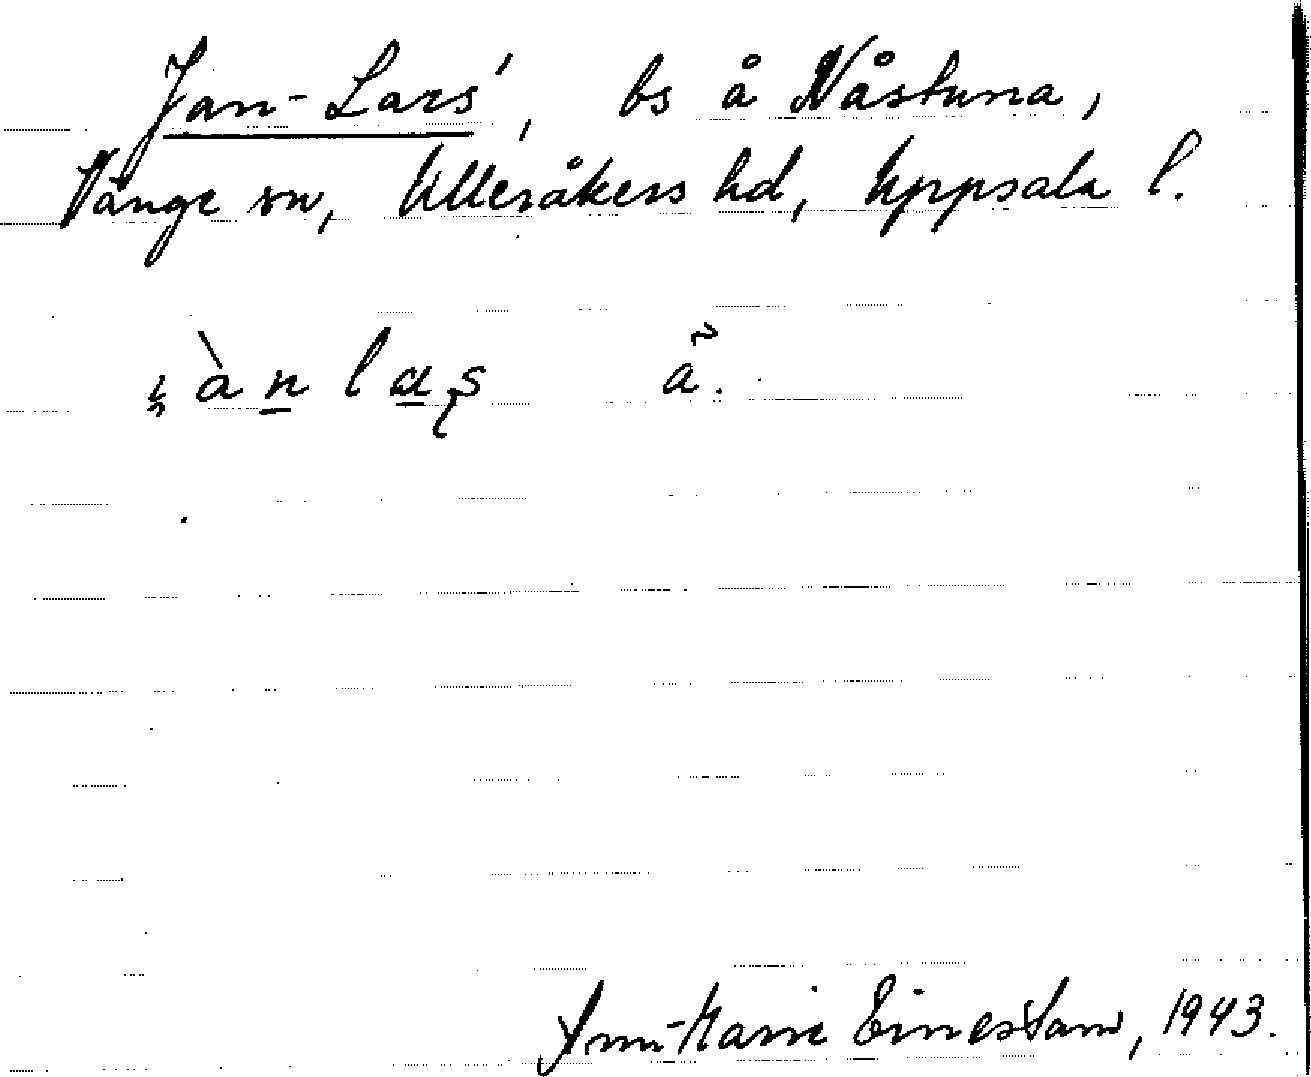 Jan-Lars', bs å Nåstuna,
Vänge sn, Ulleråkers hd, Uppsala l.
Ann-Marie Einestam, 1943.